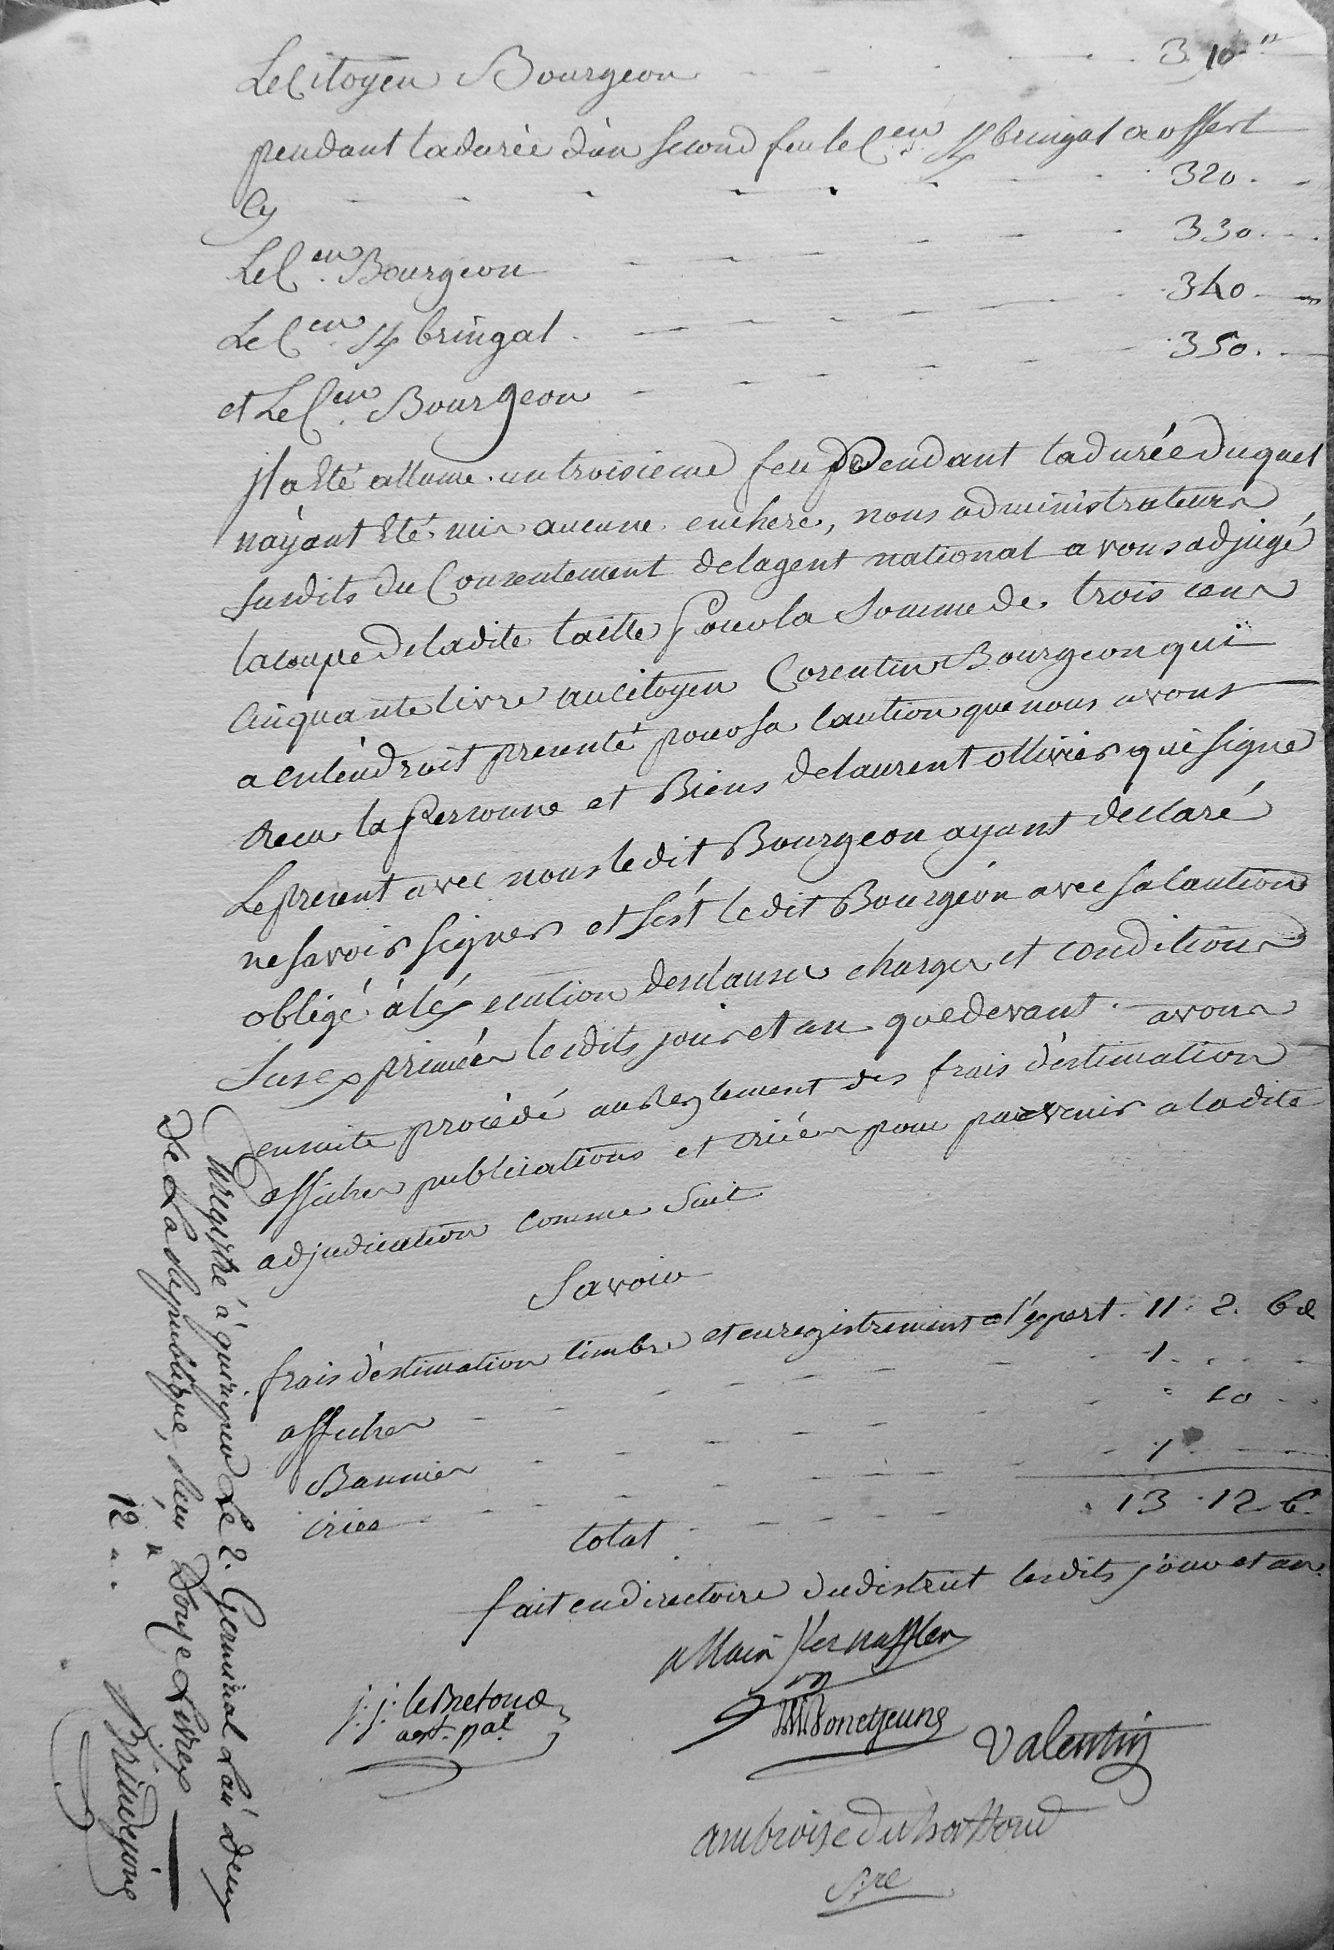 Le Citoyen Bourgeon - - - - 310 "
pendant la durée d'un Second feu le Cen bringal a offert
Cy - - - - - - - 320. -
Le Cen. Bourgeon - - - - - 330. -
Le Cen. bringal. - - - - - 340. -
et Le Cen. Bourgeon - - - - - 350. -
jl a Eté allumé un troisieme feu pendant la durée duquel
n'ayant Eté mis aucune enchere, nous administrateurs
Susdits du Consentement de lagent national avons adjugé
la coupe de ladite taille pour la Somme de trois cens
Cinquante livre au Citoyen Corentin Bourgeon qui
a en lendroit presenté pour sa Caution que nous avons
recu la personne et Biens de laurent ollivier qui signe
Le present avec nous ledit Bourgeon ayant declaré
ne Savoir Signer et s'est ledit Bourgeon avec sa Caution
obligé à l'éxecution des clauses charges et conditions
Sus exprimées lesdits jour et an que devant. avons
ensuite procédé au Reglement des frais d'estimation
affiches publications et criées pour parvenir a ladite
adjudication comme Suit
Savoir
frais d'estimation timbre et enregistrement d'expert. 11. 2. 6 d
affiches - - - - - - 1. - -
Bannies - - - - - - " 10 - -
criée - - - - - - 1. - -
total - - - - - 13. 12 6.
fait en directoire du district lesdits jour et an.
allain Kernafflen
j: j: le Bretone
agt. nal.
Bonetjeune
Valentin
ambroise
S.re
Enregistré à quimper Le 2. Germinal L'an deux
de La Republique, Reçu Douze Livres
12 " " .
Brindejonc